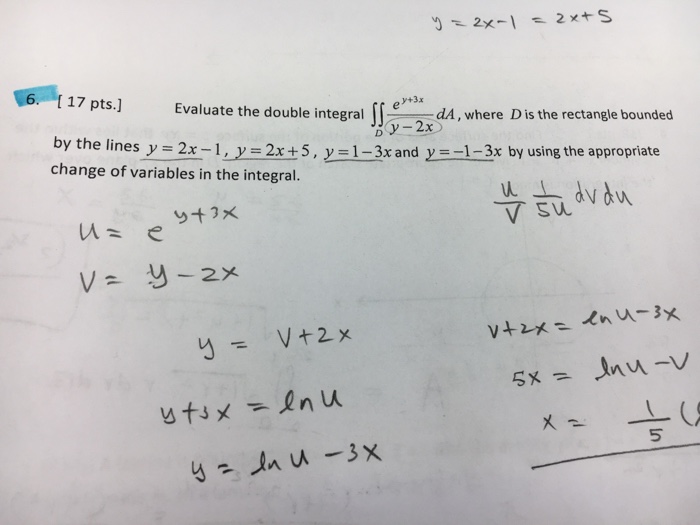 y = 2x-1 = 2x+5
6. [ 17 pts.] Evaluate the double integral ∬_D e^{y+3x}/(y-2x) dA, where D is the rectangle bounded
by the lines y = 2x-1, y = 2x+5, y = 1-3x and y = -1-3x by using the appropriate
change of variables in the integral.
u/v 1/5u dv du
u = e^{y+3x}
v = y - 2x
y = v+2x
y+3x = ln u
y = ln u - 3x
v+2x = ln u - 3x
5x = ln u - v
x = 1/5 (